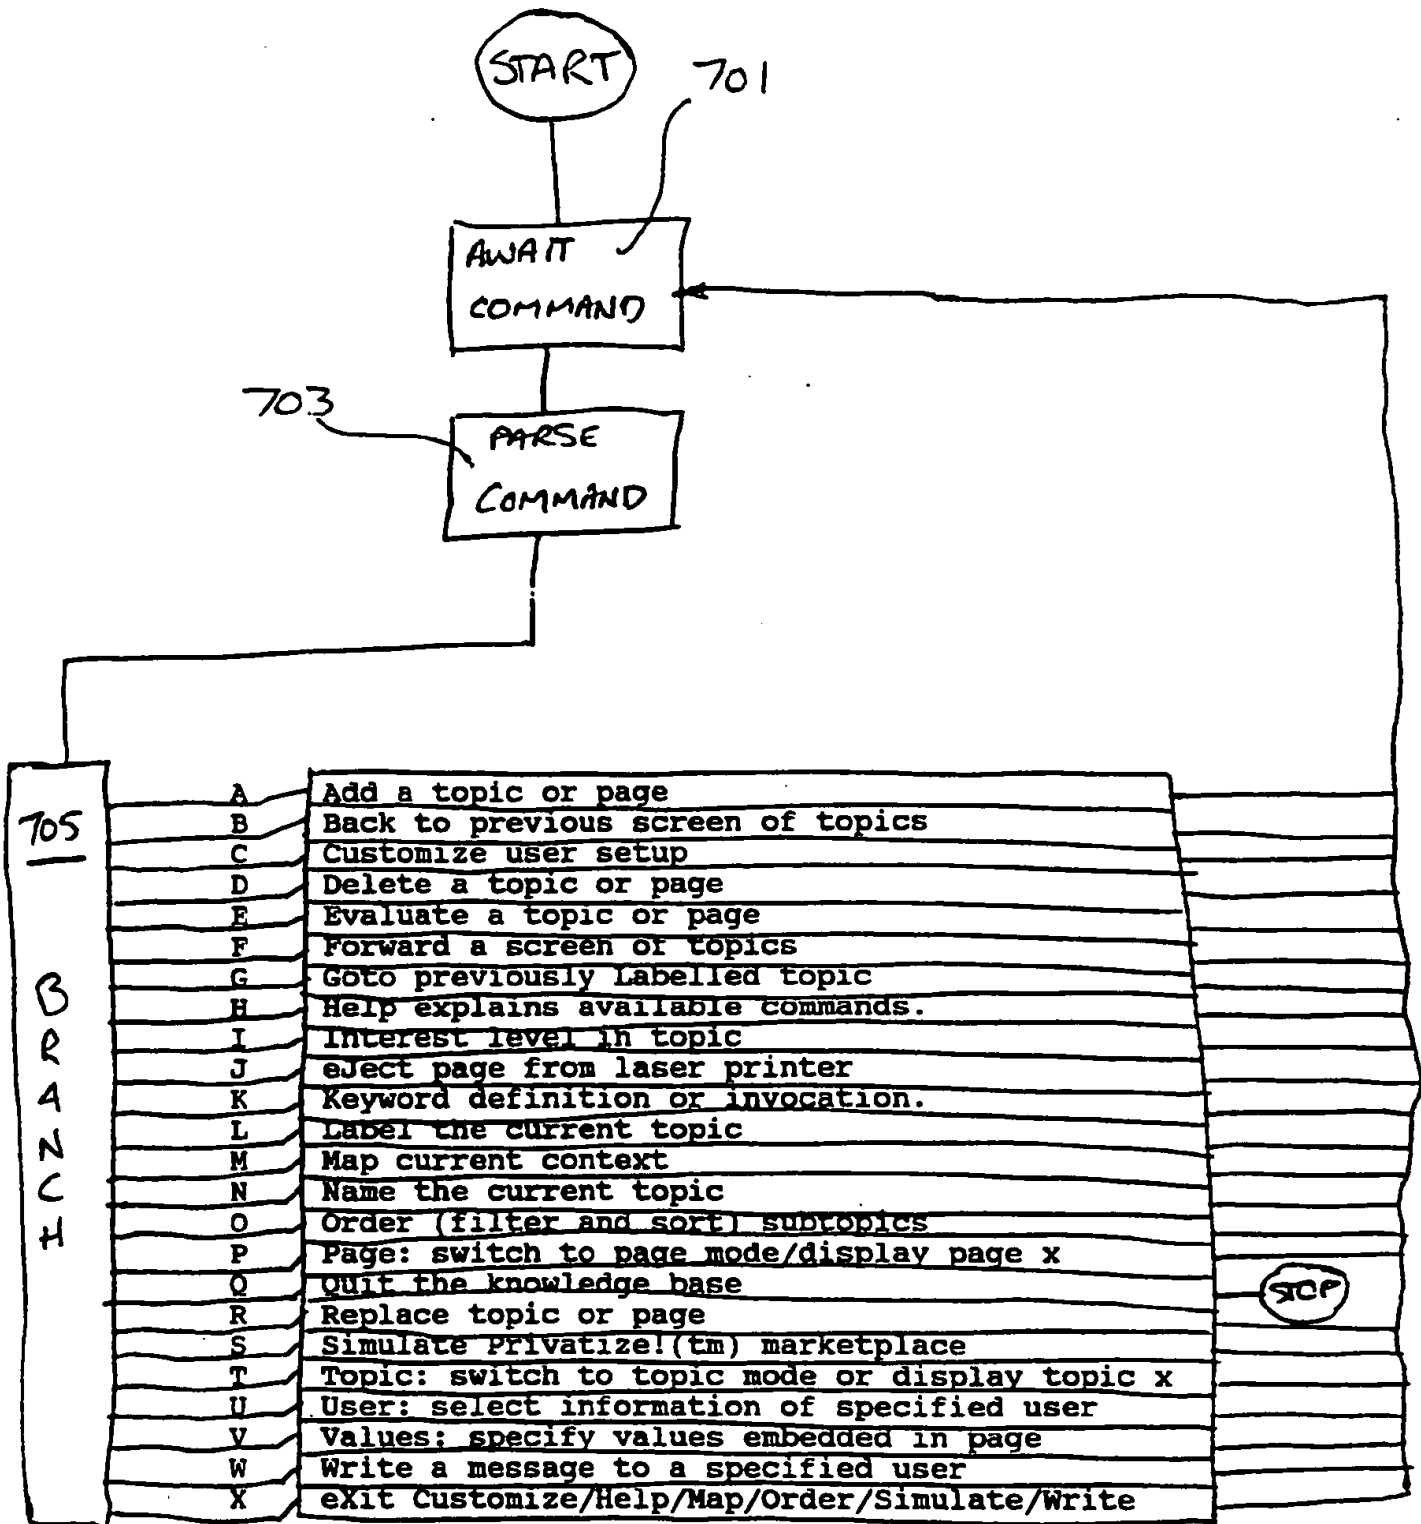 START
701
AWAIT
COMMAND
703
PARSE
COMMAND
705
BRANCH
A Add a topic or page
B Back to previous screen of topics
C Customize user setup
D Delete a topic or page
E Evaluate a topic or page
F Forward a screen of topics
G Goto previously Labelled topic
H Help explains available commands.
I Interest level in topic
J eJect page from laser printer
K Keyword definition or invocation.
L Label the current topic
M Map current context
N Name the current topic
O Order (filter and sort) subtopics
P Page: switch to page mode/display page x
Q Quit the knowledge base
STOP
R Replace topic or page
S Simulate Privatize!(tm) marketplace
T Topic: switch to topic mode or display topic x
U User: select information of specified user
V Values: specify values embedded in page
W Write a message to a specified user
X eXit Customize/Help/Map/Order/Simulate/Write